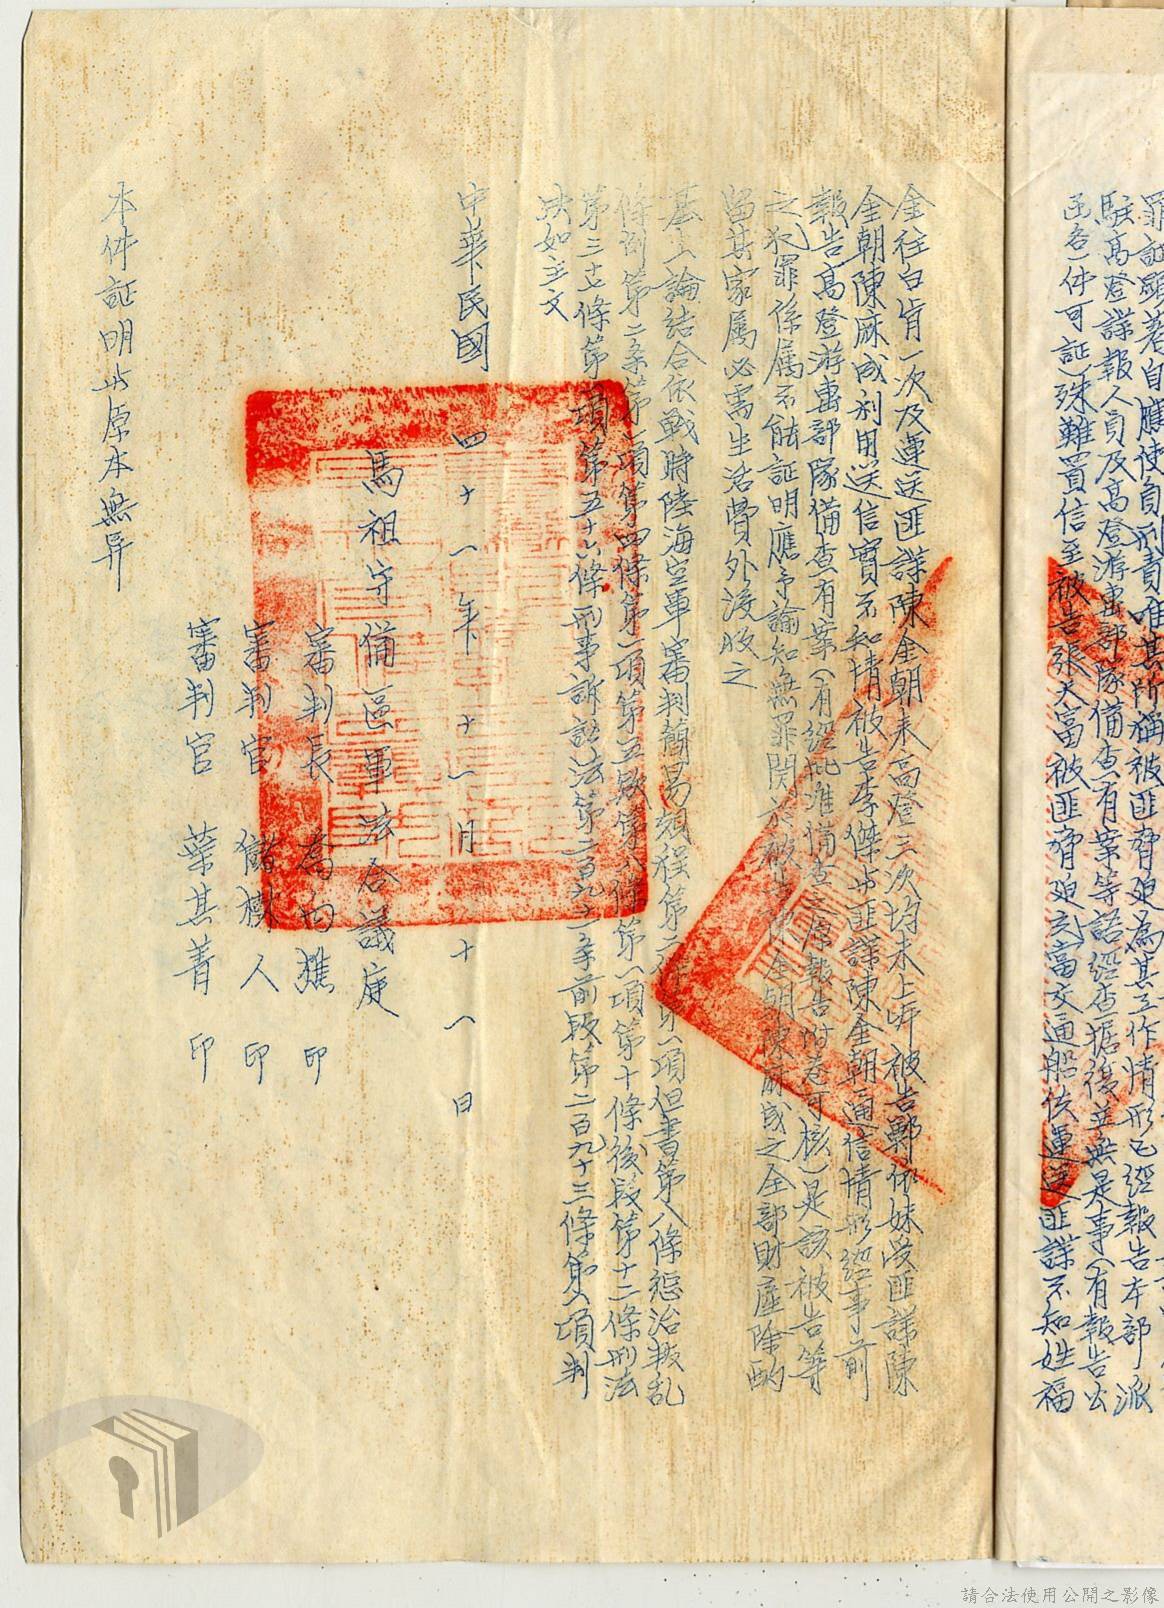 罪証顯著自應使負刑責唯其所稱被匪脅迫為其工作情形已經報告本部派
駐高登諜報人員及高登游擊部隊備查有案等語經查據後並無是事(有報告公
函各一件可証)殊難置信至被告張大富被匪脅迫充當交通船伕運送匪諜不知姓福
金往白肯一次及運送匪諜陳金朝來高登三次均未上岸被告鄭依妹受匪諜陳
金朝陳麻成利用送信實不知情被告李傑與匪諜陳金朝通信情形經事前
報告高登游擊部隊備查有案(有經批准備查之原報告附卷可核)是該被告等
之犯罪係屬不能証明應予諭知無罪関於被告陳金朝陳麻成之全部財產除酌
留其家屬必需生活費外沒收之
基上論結合依戰時陸海空軍審判簡易規程第二條第一項但書第八條懲治叛乱
條例第二條第一項第四條第一項第五款第八條第一項第十條後段第十二條刑法
第三十七條第一項第五十六條刑事訴訟法第二百九十一條前段第二百九十三條第一項判
決如主文
中華民國 四十一年十一月 十八日
馬祖守備區軍法合議庭
審判長 喬向樵 印
審判官 儲樹人 印
審判官 葉其菁 印
本件証明与原本無异
請合法使用公開之影像